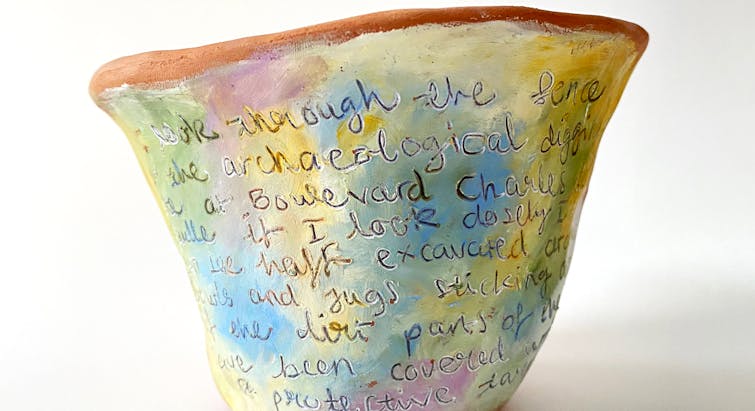 look through the fence
the archaeological diggi
at Boulevard Charles
ulle if I look closely I
see half excavated
and jugs sticking
the dirt parts of the
ve been covered
a protective tar